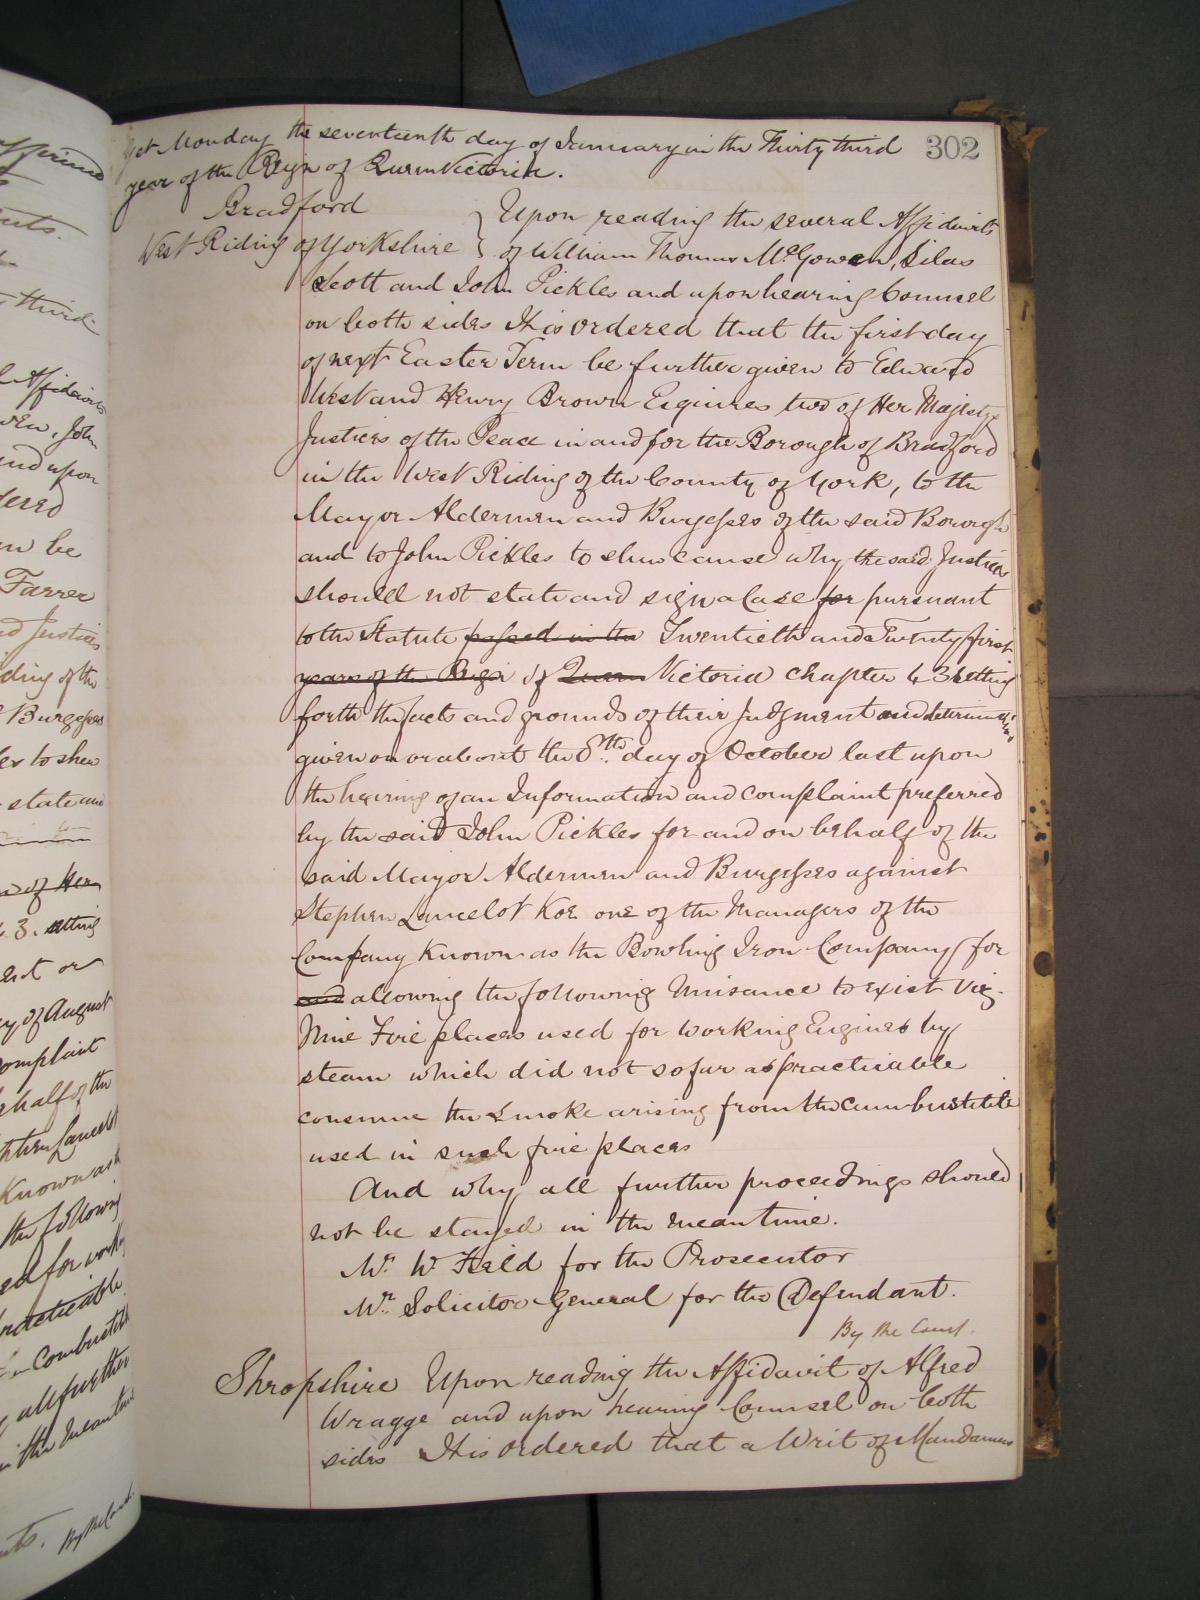 302
Yet Monday the seventeenth day of January in the Thirty third
year of the Reign of Queen Victoria.
Bradford
West Riding of Yorkshire
Upon reading the several Affidavits
of William Thomas McGowen, Silas
Scott and John Pickles and upon hearing Counsel
on both sides It is ordered that the first day
of next Easter Term be further given to Edward
West and Henry Brown Esquires two of Her Majestys
Justices of the Peace in and for the Borough of Bradford
in the West Riding of the County of York, to the
Mayor Aldermen and Burgesses of the said Borough
and to John Pickles to shew cause why the said Justices
should not state and sign a case for pursuant
to the Statute passed in the Twentieth and Twenty first
years of the Reign of Queen Victoria Chapter 43 setting
forth the facts and grounds of their Judgment and determination
given on or about the 8th. day of October last upon
the hearing of an Information and complaint preferred
by the said John Pickles for and on behalf of the
said Mayor Aldermen and Burgesses against
Stephen Lancelot Koe one of the Managers of the
Company Known as the Bowling Iron Company for
and allowing the following Nuisance to exist viz.
Nine Fire places used for working Engines by
steam which did not so far as practicable
consume the Smoke arising from the combustible
used in such fire places
And why all further proceedings should
not be stayed in the meantime.
Mr. W Field for the Prosecutor
Mr. Solicitor General for the Defendant.
By the Court.
Shropshire Upon reading the Affidavit of Alfred
Wragge and upon hearing Counsel on both
sides It is ordered that a Writ of Mandamus